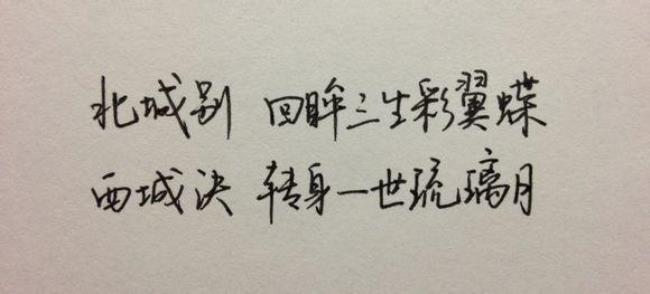 北城别 回眸三生彩翼蝶
西城决 转身一世琉璃月